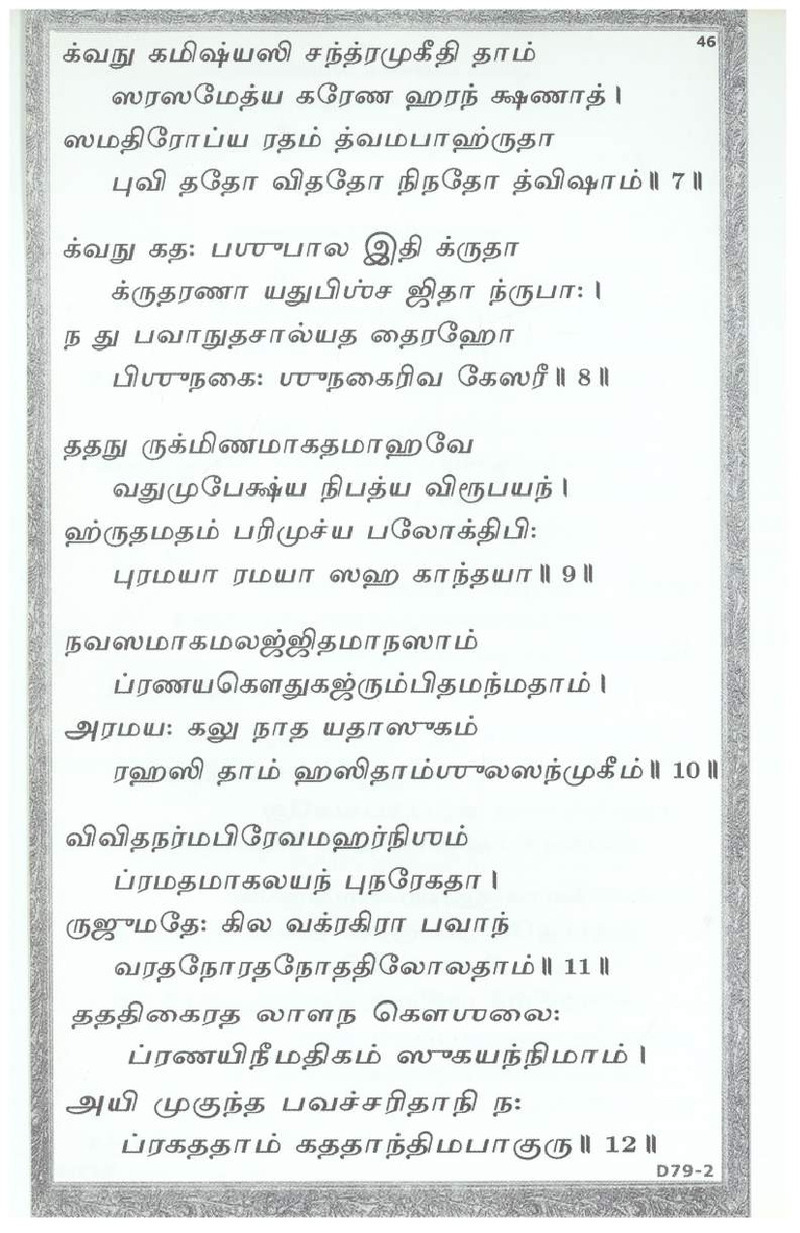 46
க்வநு கமிஷ்யஸி சந்த்ரமுகீதி தாம்
ஸரஸமேத்ய கரேண ஹரந் க்ஷணாத் |
ஸமதிரோப்ய ரதம் த்வமபாஹ்ருதா
புவி ததோ விததோ நிநதோ த்விஷாம் ॥ 7 ॥
க்வநு கத: பஶுபால இதி க்ருதா
க்ருதரணா யதுபிஶ்ச ஜிதா ந்ருபா: |
ந து பவாநுதசால்யத தைரஹோ
பிஶுநகை: ஶுநகைரிவ கேஸரீ ॥ 8 ॥
ததநு ருக்மிணமாகதமாஹவே
வதுமுபேக்ஷ்ய நிபத்ய விரூபயந் |
ஹ்ருதமதம் பரிமுச்ய பலோக்திபி:
புரமயா ரமயா ஸஹ காந்தயா ॥ 9 ॥
நவஸமாகமலஜ்ஜிதமாநஸாம்
ப்ரணயகௌதுகஜ்ரும்பிதமந்மதாம் |
அரமய: கலு நாத யதாஸுகம்
ரஹஸி தாம் ஹஸிதாம்ஶுலஸந்முகீம் ॥ 10 ॥
விவிதநர்மபிரேவமஹர்நிஶம்
ப்ரமதமாகலயந் புநரேகதா |
ருஜுமதே: கில வக்ரகிரா பவாந்
வரதநோரதநோததிலோலதாம் ॥ 11 ॥
தததிகைரத லாளந கௌஶலை:
ப்ரணயிநீமதிகம் ஸுகயந்நிமாம் |
அயி முகுந்த பவச்சரிதாநி ந:
ப்ரகததாம் கததாந்திமபாகுரு ॥ 12 ॥
D79-2